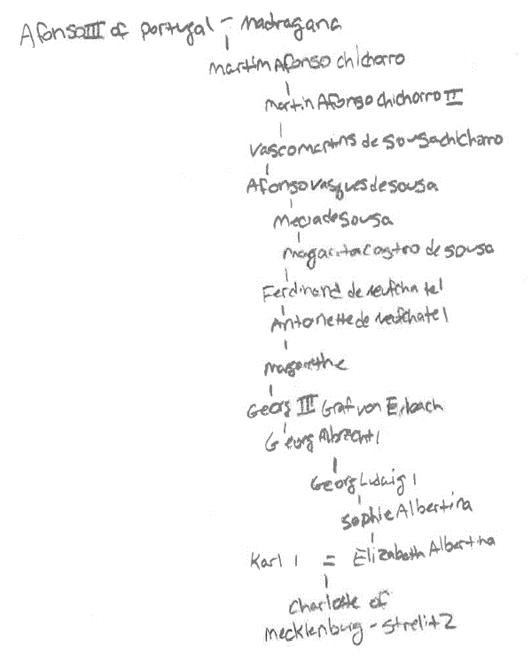 Afonso III of Portugal - Madragana
Martim Afonso chichorro
Martin Afonso chichorro II
Vasco martins de Sousa chicharro
Afonso vasques de sousa
Mecia de Sousa
Magarita castro de sousa
Ferdinand de neufchatel
Antonette de neufchatel
Margarethe
Georg III Graf von Erbach
Georg Albrecht I
Georg Ludwig I
Sophie Albertina
Karl I = Elizabeth Albertina
Charlotte of
Mecklenburg - Strelitz